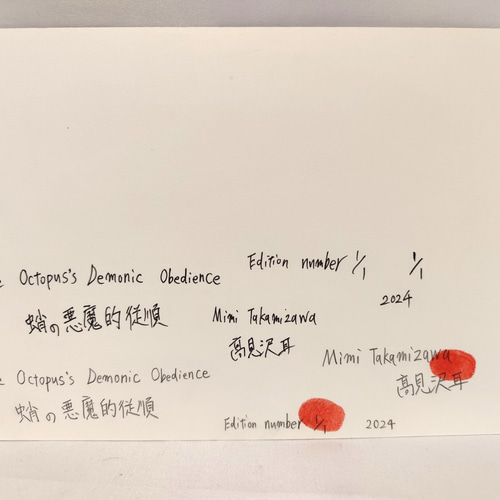 Edition number 1/1 1/1
Octopus's Demonic Obedience
2024
蛸の悪魔的従順
Mimi Takamizawa
高見沢耳
Mimi Takamizawa
Octopus's Demonic Obedience
高見沢耳
蛸の悪魔的従順
Edition number 1/1 2024